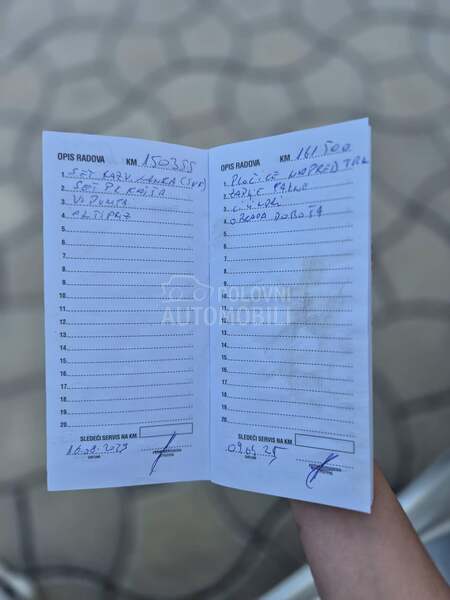 OPIS RADOVA KM 150355
1. SET RAZV. LANCA (SKF)
2. SET PL. KAIŠA
3. V. PUMPA
4. ANTIFRIZ
5.
6.
7.
8.
9.
10.
11.
12.
13.
14.
15.
16.
17.
18.
19.
20.
SLEDEĆI SERVIS NA KM
DATUM
OPIS RADOVA KM 161500
1. PLOČICE NAPRED TRW
2.
3. CILINDRI
4. OBRADA DOBOŠA
5.
6.
7.
8.
9.
10.
11.
12.
13.
14.
15.
16.
17.
18.
19.
20.
SLEDEĆI SERVIS NA KM
DATUM
POLOVNI
AUTOMOBILI